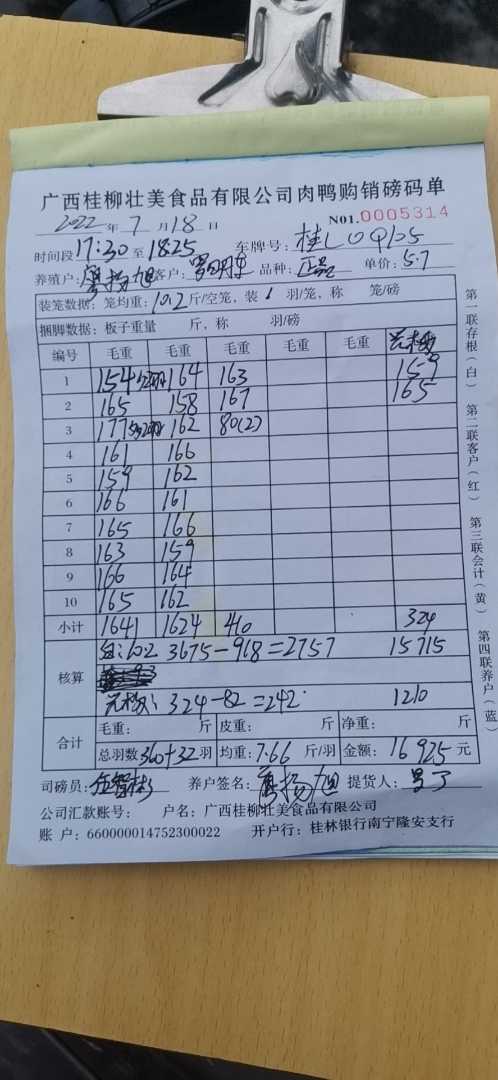 广西桂柳壮美食品有限公司肉鸭购销磅码单
2022年7月18日 N01.0005314
时间段17:30至18:25 车牌号：桂L0Q105
养殖户：扬旭 客户：罗明 品种：正品 单价：5.7
装笼数据：笼均重：10.2斤/空笼，装 羽/笼，称 笼/磅
捆脚数据：板子重量 斤，称 羽/磅
编号 毛重 毛重 毛重 毛重 毛重
1 154 164 163 159
2 165 158 167 165
3 177 162 80(2)
4 161 166
5 159 162
6 166 161
7 165 166
8 163 159
9 166 164
10 165 162
小计 1641 1624 410 324
核算 10.2 3675-918=2757 15715
324-82=242 1210
合计 毛重： 斤 皮重： 斤 净重： 斤
总羽数360+32羽 均重：7.66斤/羽 金额：16925元
司磅员： 养户签名：扬旭 提货人：
公司汇款账号： 户名：广西桂柳壮美食品有限公司
账 户：660000014752300022 开户行：桂林银行南宁隆安支行
第一联存根(白) 第二联客户(红) 第三联会计(黄) 第四联养户(蓝)